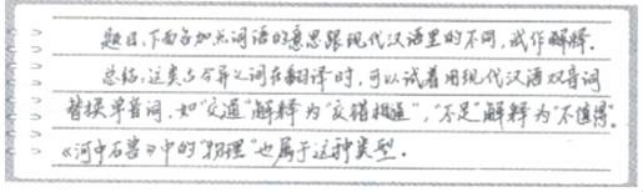 题目，下面各加点词语的意思跟现代汉语里的不同，试作解释。
总结，这类古今异义词在翻译时，可以试着用现代汉语双音词
替换单音词，如“交通”解释为“交错相通”，“不足”解释为“不值得”。
《河中石兽》中的“物理”也属于这种类型。